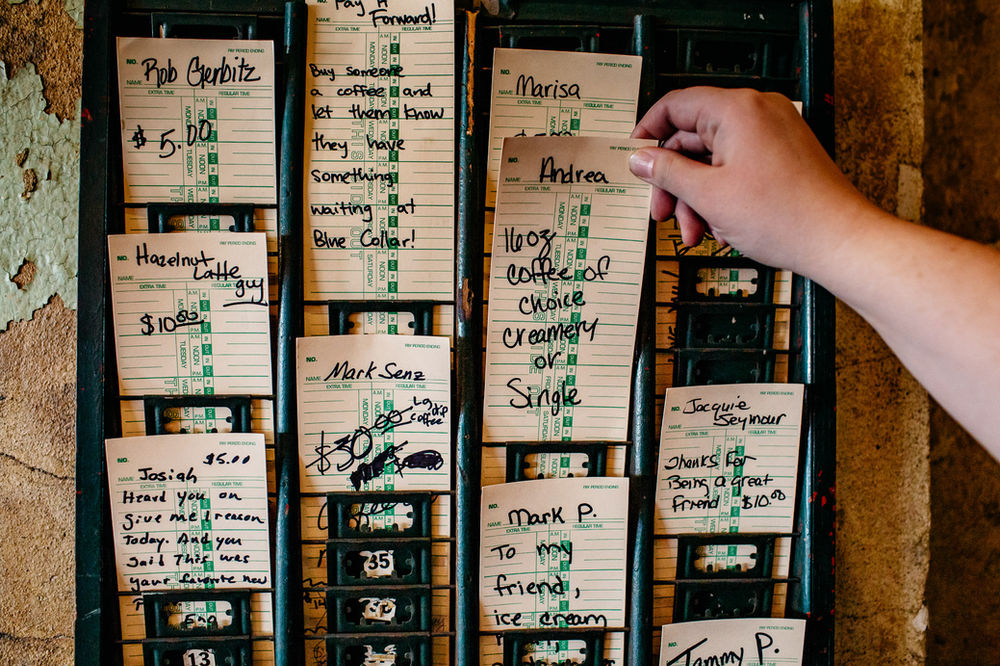 PAY PERIOD ENDING
NO.
Rob Gerbitz
NAME
EXTRA TIME REGULAR TIME
$5.00
PAY PERIOD ENDING
NO.
Hazelnut
Latte
guy
NAME
EXTRA TIME REGULAR TIME
$10.00
PAY PERIOD ENDING
NO.
$5.00
Josiah
NAME
EXTRA TIME REGULAR TIME
Heard you on
give me 1 reason
Today. And you
said This was
your favorite new
13
Pay it
Forward!
NAME
EXTRA TIME REGULAR TIME
Buy someone
a coffee and
let them know
they have
something
waiting at
Blue Collar!
PAY PERIOD ENDING
NO.
Mark Senz
NAME
EXTRA TIME REGULAR TIME
$30.00
Lg drip
coffee
35
PAY PERIOD ENDING
NO.
Marisa
NAME
EXTRA TIME REGULAR TIME
NO.
Andrea
NAME
EXTRA TIME REGULAR TIME
16oz
coffee of
choice
creamery
or
Single
PAY PERIOD ENDING
NO.
Mark P.
NAME
EXTRA TIME REGULAR TIME
To my
friend,
ice cream
PAY PERIOD ENDING
NO.
Jacquie
Seymour
NAME
EXTRA TIME REGULAR TIME
Thanks for
Being a great
friend $10.00
PAY PERIOD ENDING
NO.
Tammy P.
NAME